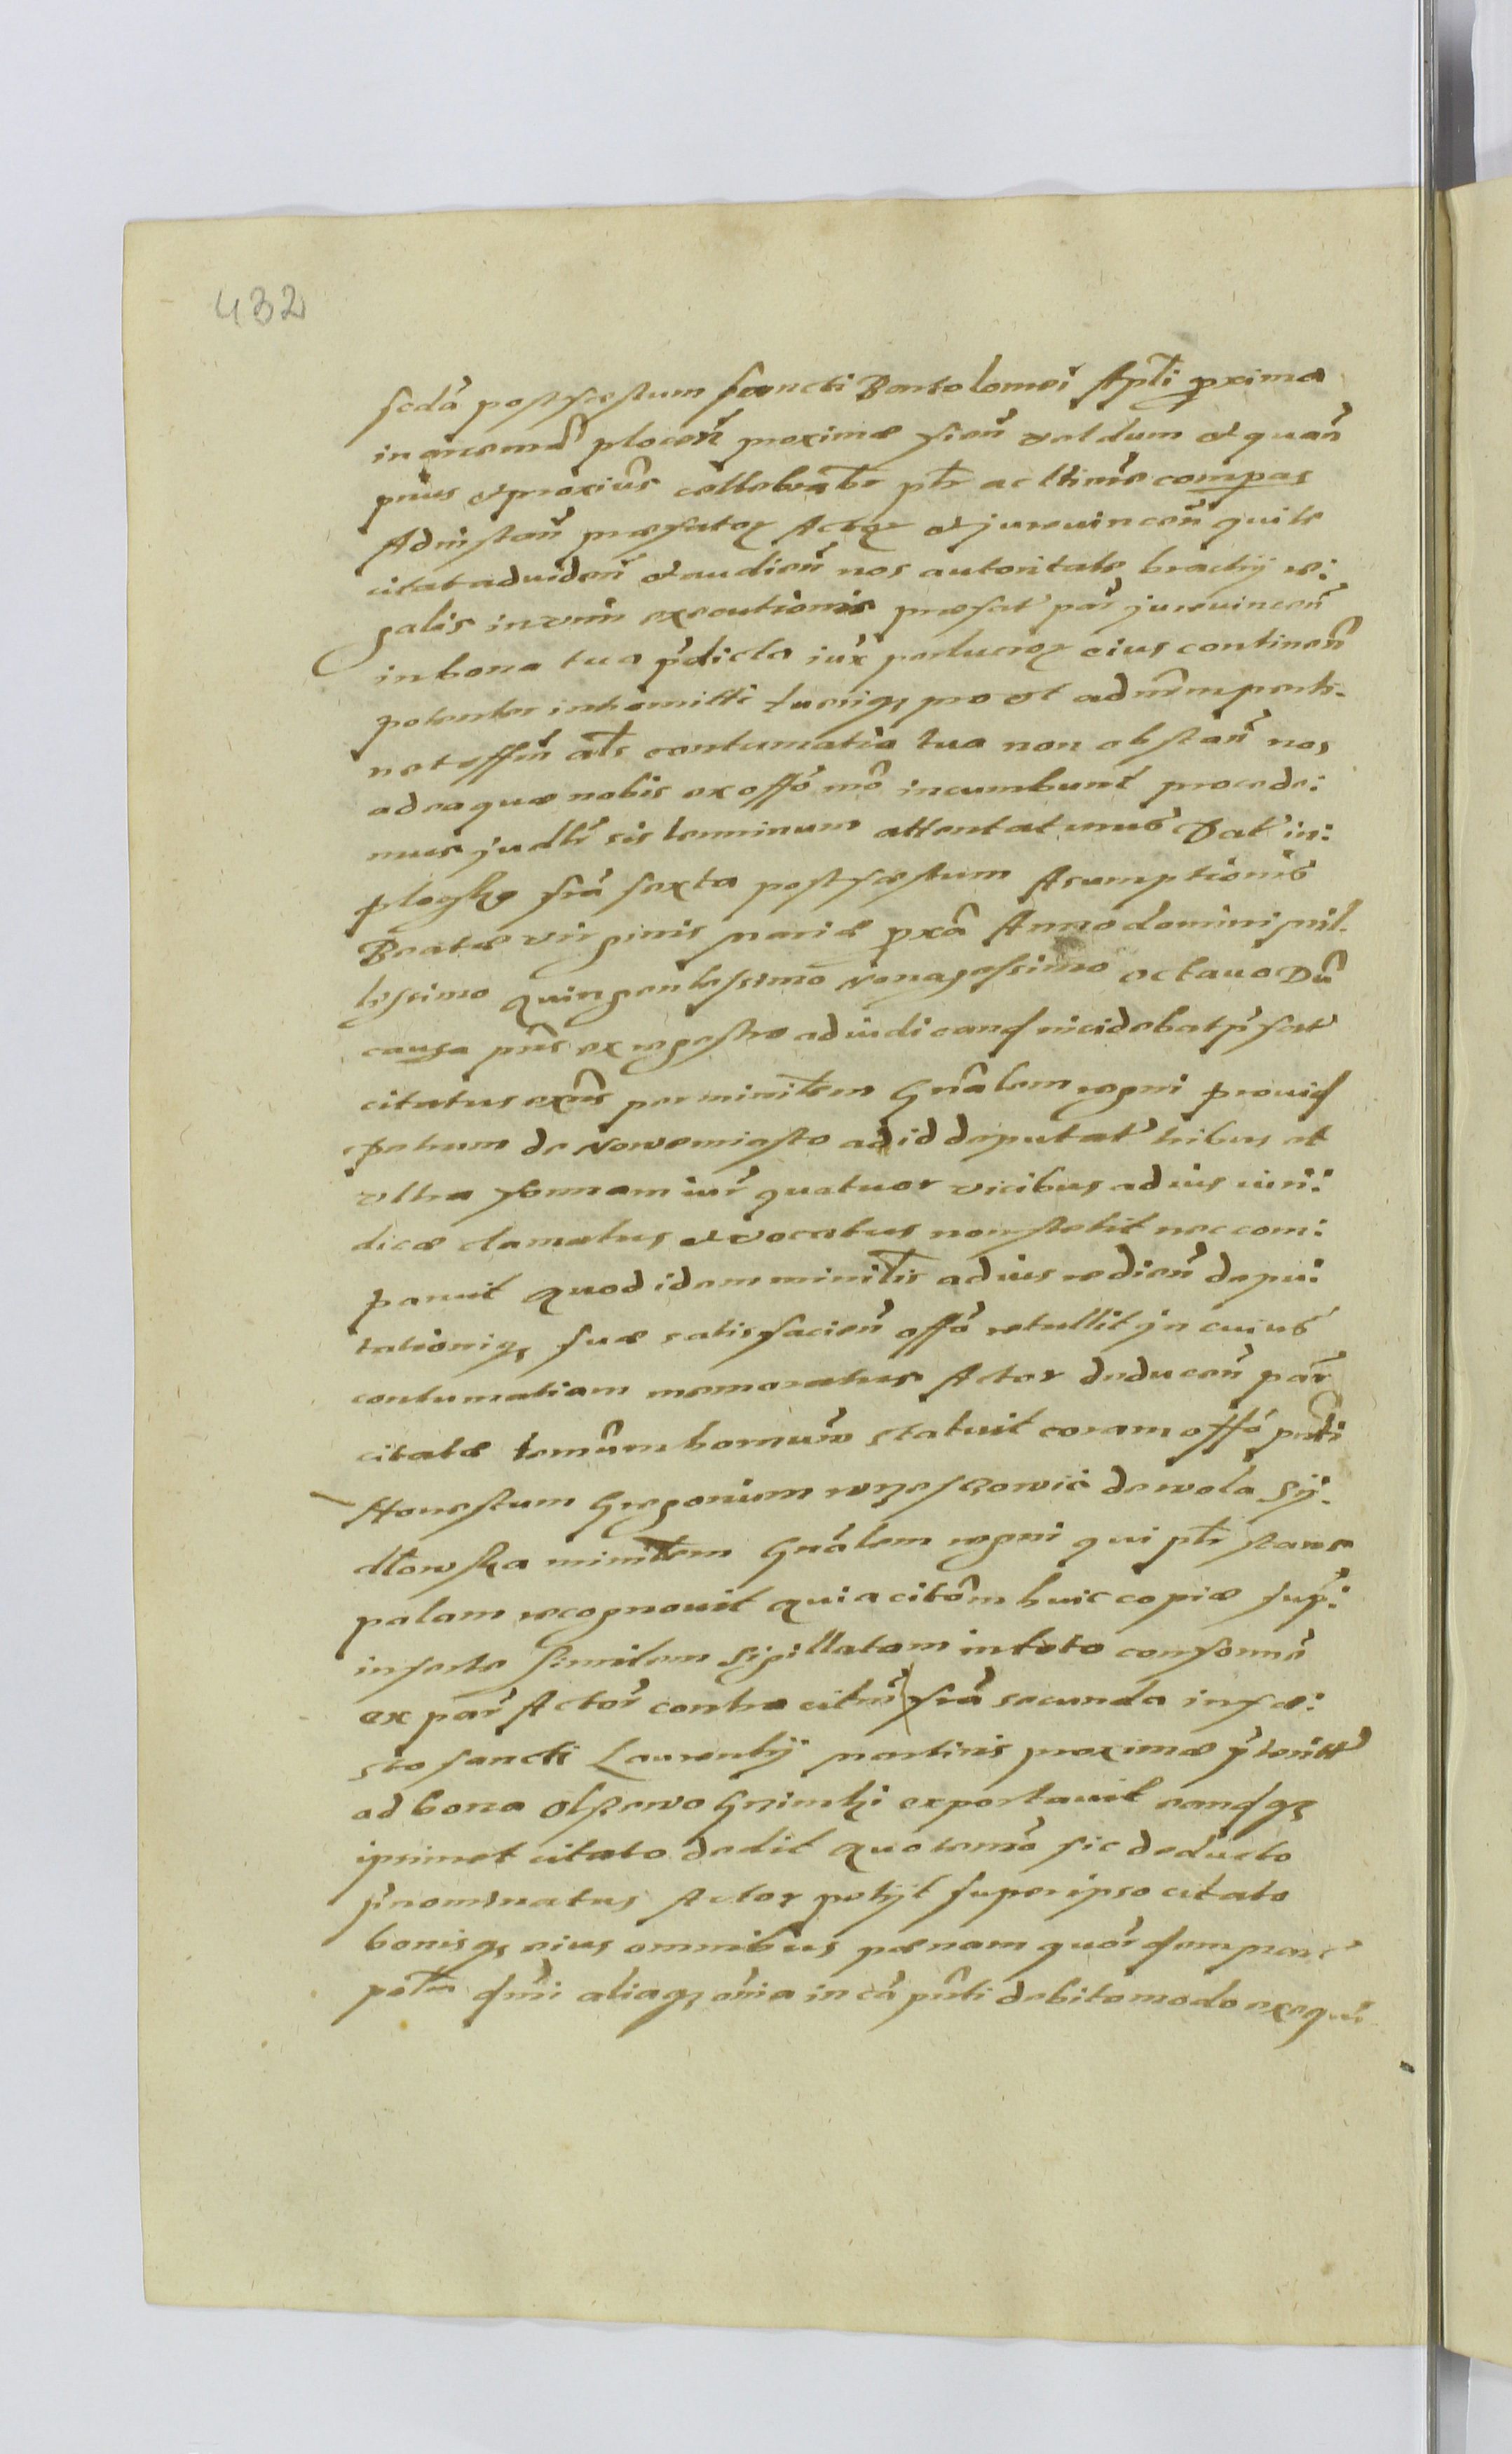 432
scdâ post festum sancti Bartolomei Apli proxima
in arcem plocen proximæ fien vel dum et quan
prius et proxius cellebrabr plr ac ltimre compas
Ad instan præfatoꝝ Actoꝝ et jurevincen qui te
citat ad viden et audien nos autoritate brachij re:
galis in vim executionis præfat par jurevincen
in bona tua pdicta iux perlucroꝝ eius continen
potenter intromitti tueriqꝫ pro et ad nrm perti-
net offm als contumatia tua non obstan nos
ad ea quæ nobis ex offo mo incumbunt procede:
mus judlr sis terminum attentaturus Dat in:
Ploczko fria sexta post festum Asumptionis
Beatæ virginis Mariæ pxa Anno domini mil-
lessimo quingentessimo Nonagessimo octavo Dum
causa pns ex regestro ad iudicand incidebat pfat
citatus exns per minitlem Gnalem regni Provid
Petrum de Nowemiasto ad id deputat tribus et
vltra formam iur quatuor vicibus ad ius iuri:
dicæ clamatus et vocatus non stetit nec com:
paruit Quod idem minitlis ad ius redien depu:
tationiqꝫ suæ satisfacien offo retullit in cuius
contumatiam memoratus Actor deducen par
citatæ termum bornum statuit coram offo pnti
Honestum Gregorium wrzeszowic de wola Sij:
dlowska minitlem Gnalem regni qui plr stans
palam recognouit Quia citom huic copiæ sup:
inserte similem Sigillatam in toto conforme
ex par Actor contra citm fria secunda in fæ:
sto sancti Laurentij martiris proximæ pterit
ad bona Olszewo Grzimki exportavit eandqꝫ
ipsimet citato dedit Quo termo sic deducto
pnominatus Actor petijt super ipso citato
bonisqꝫ eius omnibus pænam quordem marc
petta dni aliaqꝫ omia in ca pnti debito modo exequi